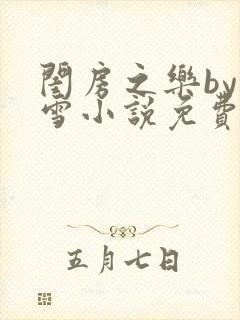 閨房之樂by
雪小說免費
五月七日